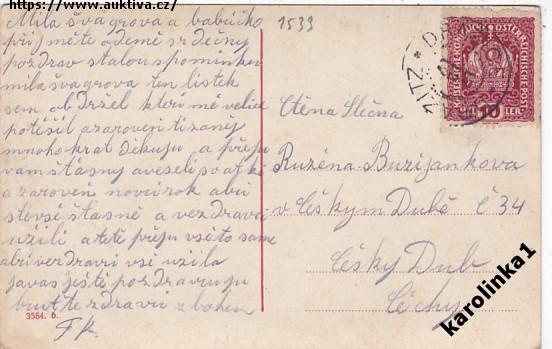 https://www.aukticia.cz/
Milá švagrova a babičko
přijměte odemě srdečny
pozdrav stalou spominku
milašvagrova ten listek
sem obdrzel kteri mé velice
potěšil azaroveň
mnohokrát děkuju a přeju
vam štasny aveseli svatke
azaroveň novi rok abi
šlevšé štastně a vezdravi
užili atetě přeju všeto same
abi verdravi vše užila
javas ještě pozdravuju
buďte zdravi z bohem
FK.
3564. 6.
1533
Ctěna Slečna
Ružéna Burijankova
v Českym Dubě č 34
Česky Dub
Čechy
KAISERLICHE KÖNIGLICHE ÖSTERREICHISCHE POST
HELLER
karolinka1